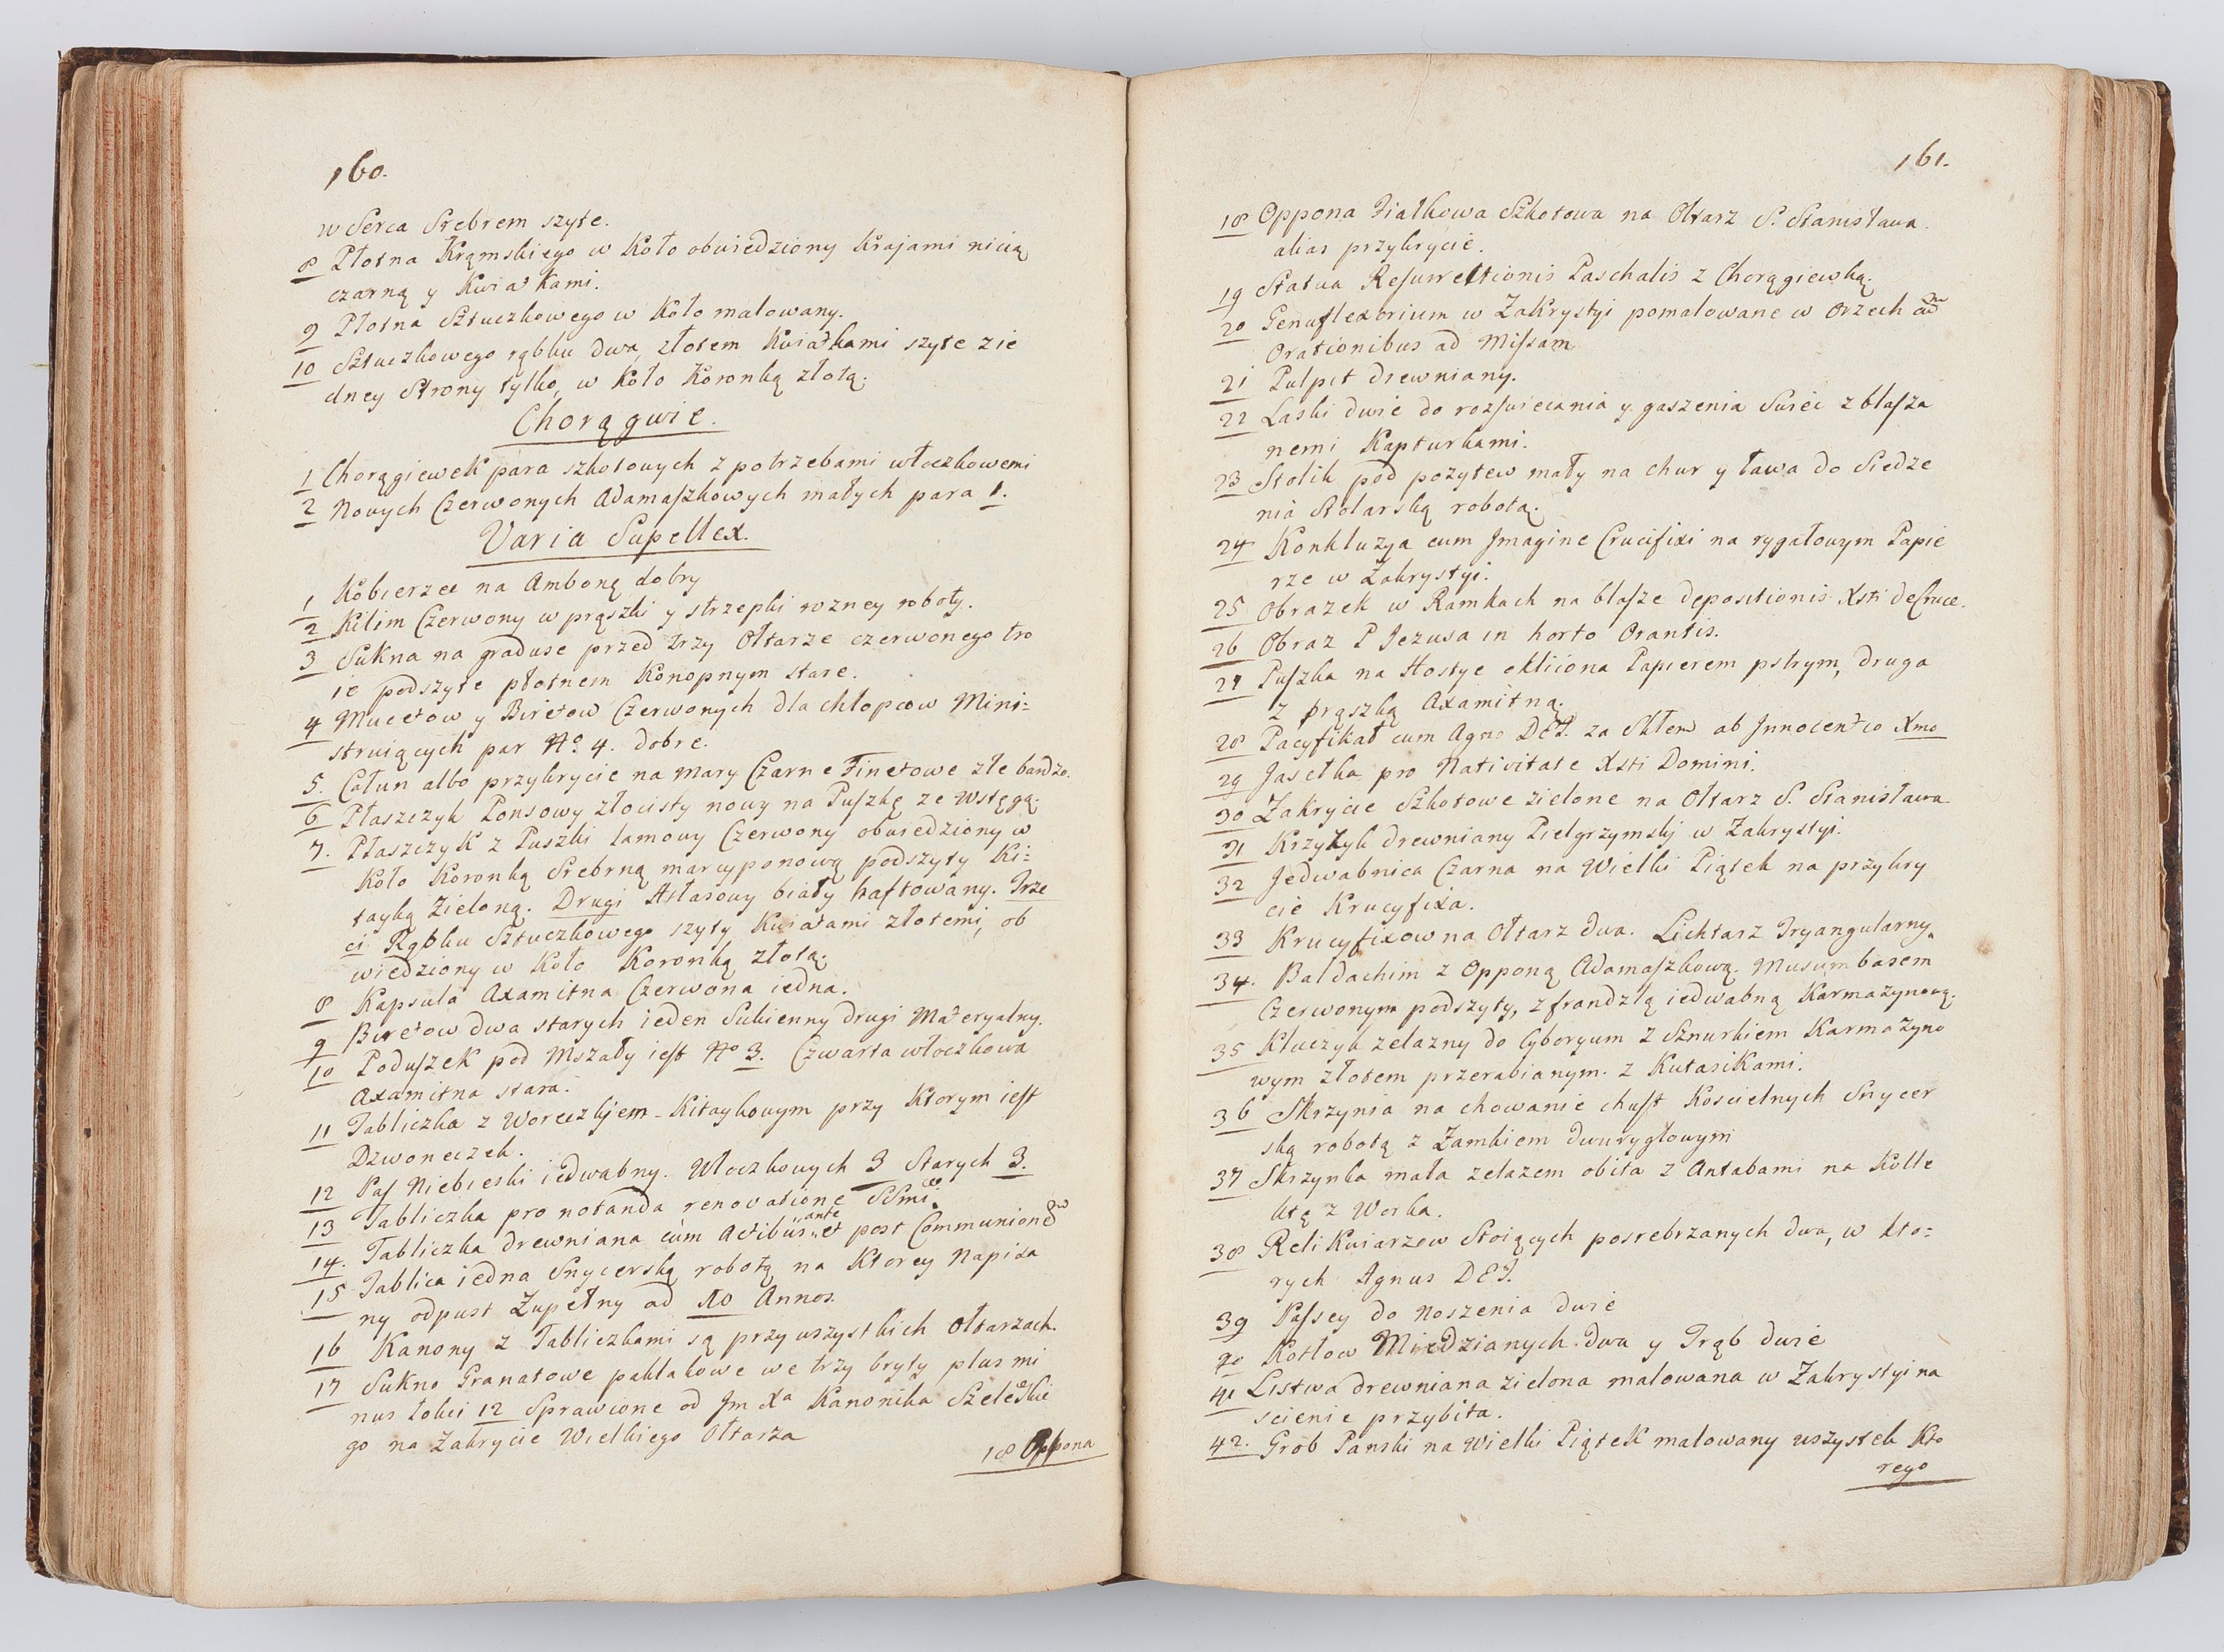 160.
w Serca Srebrem szyte.
8 Płotna Krąmskiego w Koło obwiedziony krajami nicią
czarną y Kwiatkami.
9 Płotna Sztuczkowego w Koło malowany.
10 Sztuczkowego rąbku dwa, złotem Kwiatkami szyte zie
dney Strony tylko, w koło Koronką złotą.
Chorągwie.
1 Chorągiewek para szkotowych z potrzebami włoczkowemi
2 Nowych Czerwonych Adamaszkowych małych para 1.
Varia Supellex.
1 Kobierzec na Ambonę dobry
2 Kilim Czerwony w prąszki y strzepki rozney roboty.
3 Sukna na graduse przed trzy Ołtarze czerwonego tro
ie podszyte płotnem Konopnym stare.
4 Mucetow y Biretow Czerwonych dla chłopcow Mini=
struiących par No. 4. dobre.
5. Całun albo przykrycie na mary Czarne Finetowe złe bardzo.
6 Płaszczyk Ponsowy złocisty nowy na Puszkę ze Wstęgą.
7. Płaszczyk z Puszki lamowy Czerwony obwiedziony w
Koło Koronką Srebrną marcyponową podszyty Ki=
tayką Zieloną. Drugi Atłasowy biały haftowany. Trze
ci Rąbku Sztuczkowego szyty Kwiatami złotemi, ob
wiedziony w Koło Koronką złotą.
8 Kapsula Axamitna Czerwona iedna.
9 Biretow dwa starych ieden Sukienny drugi Materyalny.
10 Poduszek pod Mszały iest No 3. Czwarta włoczkowa
Axamitna stara.
11 Tabliczka z Woreczkjem Kitaykowym przy Ktorym iest
Dzwoneczek.
12 Pas Niebieski iedwabny. Włoczkowych 3 Starych 3.
13 Tabliczka pro notanda renovatione SSmi.
14. Tabliczka drewniana cum Actibus ante et post Communionem
15 Tablica iedna Snycerską robotą na Ktorey napisa
ny odpust Zupełny ad 10 Annos.
16 Kanony z Tabliczkami są przy wszystkich Ołtarzach.
17 Sukno Granatowe paklakowe we trzy bryty plus mi
nus łokci 12 Sprawione od Jm Xa Kanonika Szeleskie
go na Zakrycie Wielkiego Ołtarza
18 Oppona
161.
18 Oppona Fiałkowa Szkotowa na Ołtarz S. Stanisława.
alias przykrycie.
19 Statua Resurrectionis Paschalis z Chorągiewką.
20 Genuflexorium w Zakrystyi pomalowane w Orzech ad
Orationibus ad Missam
21 Pulpit drewniany.
22 Laski dwie do rozswiecania y gaszenia Swiec z blasza
nemi Kapturkami.
23 Stolik pod pozytew mały na chur y ława do Siedze
nia Stolarską robotą.
24 Konkluzya cum Jmagine Crucifixi na rygałowym Papie
rze w Zakrystyi.
25 Obrazek w Ramkach na blasze depositionis Xsti de Cruce.
26 Obraz P Jezusa in horto Orantis.
27 Puszka na Hostye okliiona Papierem pstrym, druga
z prąszką Axamitną.
28 Pacyfikał cum Agno DEI. za Skłem ab Jnnocentio Xmo
29 Jasełka pro Nativitate Xsti Domini.
30 Zakrycie Szkotowe zielone na Ołtarz S. Stanisława
31 Krzyżyk drewniany Pielgrzymskj w Zakrystyi.
32 Jedwabnica Czarna na Wielki Piątek na przykry
cie Krucyfixa.
33 Krucyfixow na Ołtarz dwa. Lichtarz Tryangularny.
34. Baldachim z Opponą Adamaszkową. Musumbasem
Czerwonym podszyty, z frandzlą iedwabną Karmazynową.
35 Kluczyk zelazny do Cyboryum z Sznurkiem Karmazyno
wym złotem przerabianym. z Kutasikami.
36 Skrzynia na chowanie chust Kościelnych Snycer
ską robotą z Zamkiem dwurygłowym
37 Skrzynka mała zelazem obita z Antabami na Kolle
ktę z Worka.
38 Relikwiarzow Stoiących posrebrzanych dwa, w kto=
rych Agnus DEI.
39 Passey do noszenia dwie
40 Kotłow Miedzianych dwa y Trąb dwie
41 Listwa drewniana zielona malowana w Zakrystyi na
scienie przybita.
42. Grob Panski na Wielki Piątek malowany wszystek Kto
rego